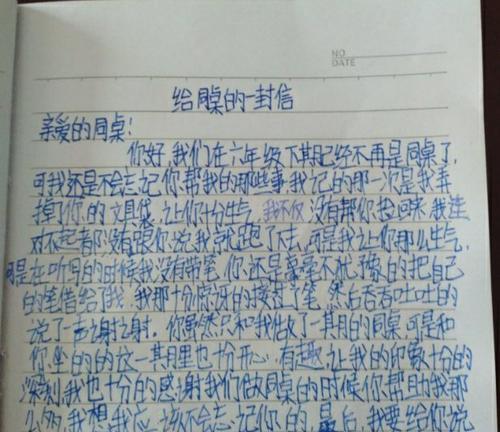 NO
DATE
给同桌的一封信
亲爱的同桌！
你好，我们在六年级下期已经不再是同桌了，
可我还是不会忘记你帮我的那些事，我记的那一次是我弄
掉了你的文具袋，让你十分生气，我不仅没有帮你捡回来，我连
对不起都没有跟你说我就跑了去，可是我让你那么生气，
可是在听写的时候我没有带笔，你还是毫不犹豫的把自己
的笔借给了我，我那十分的接过了笔，然后吞吞吐吐的
说了一声谢谢，你虽然只和我做了一期的同桌可是和
你坐的的这一其里也十分开心，有趣，让我的印象十分的
深刻，我也十分的感谢我们做同桌的时候你帮助我那
么的，我想，我应该不会忘记你的，最后，我要给你说